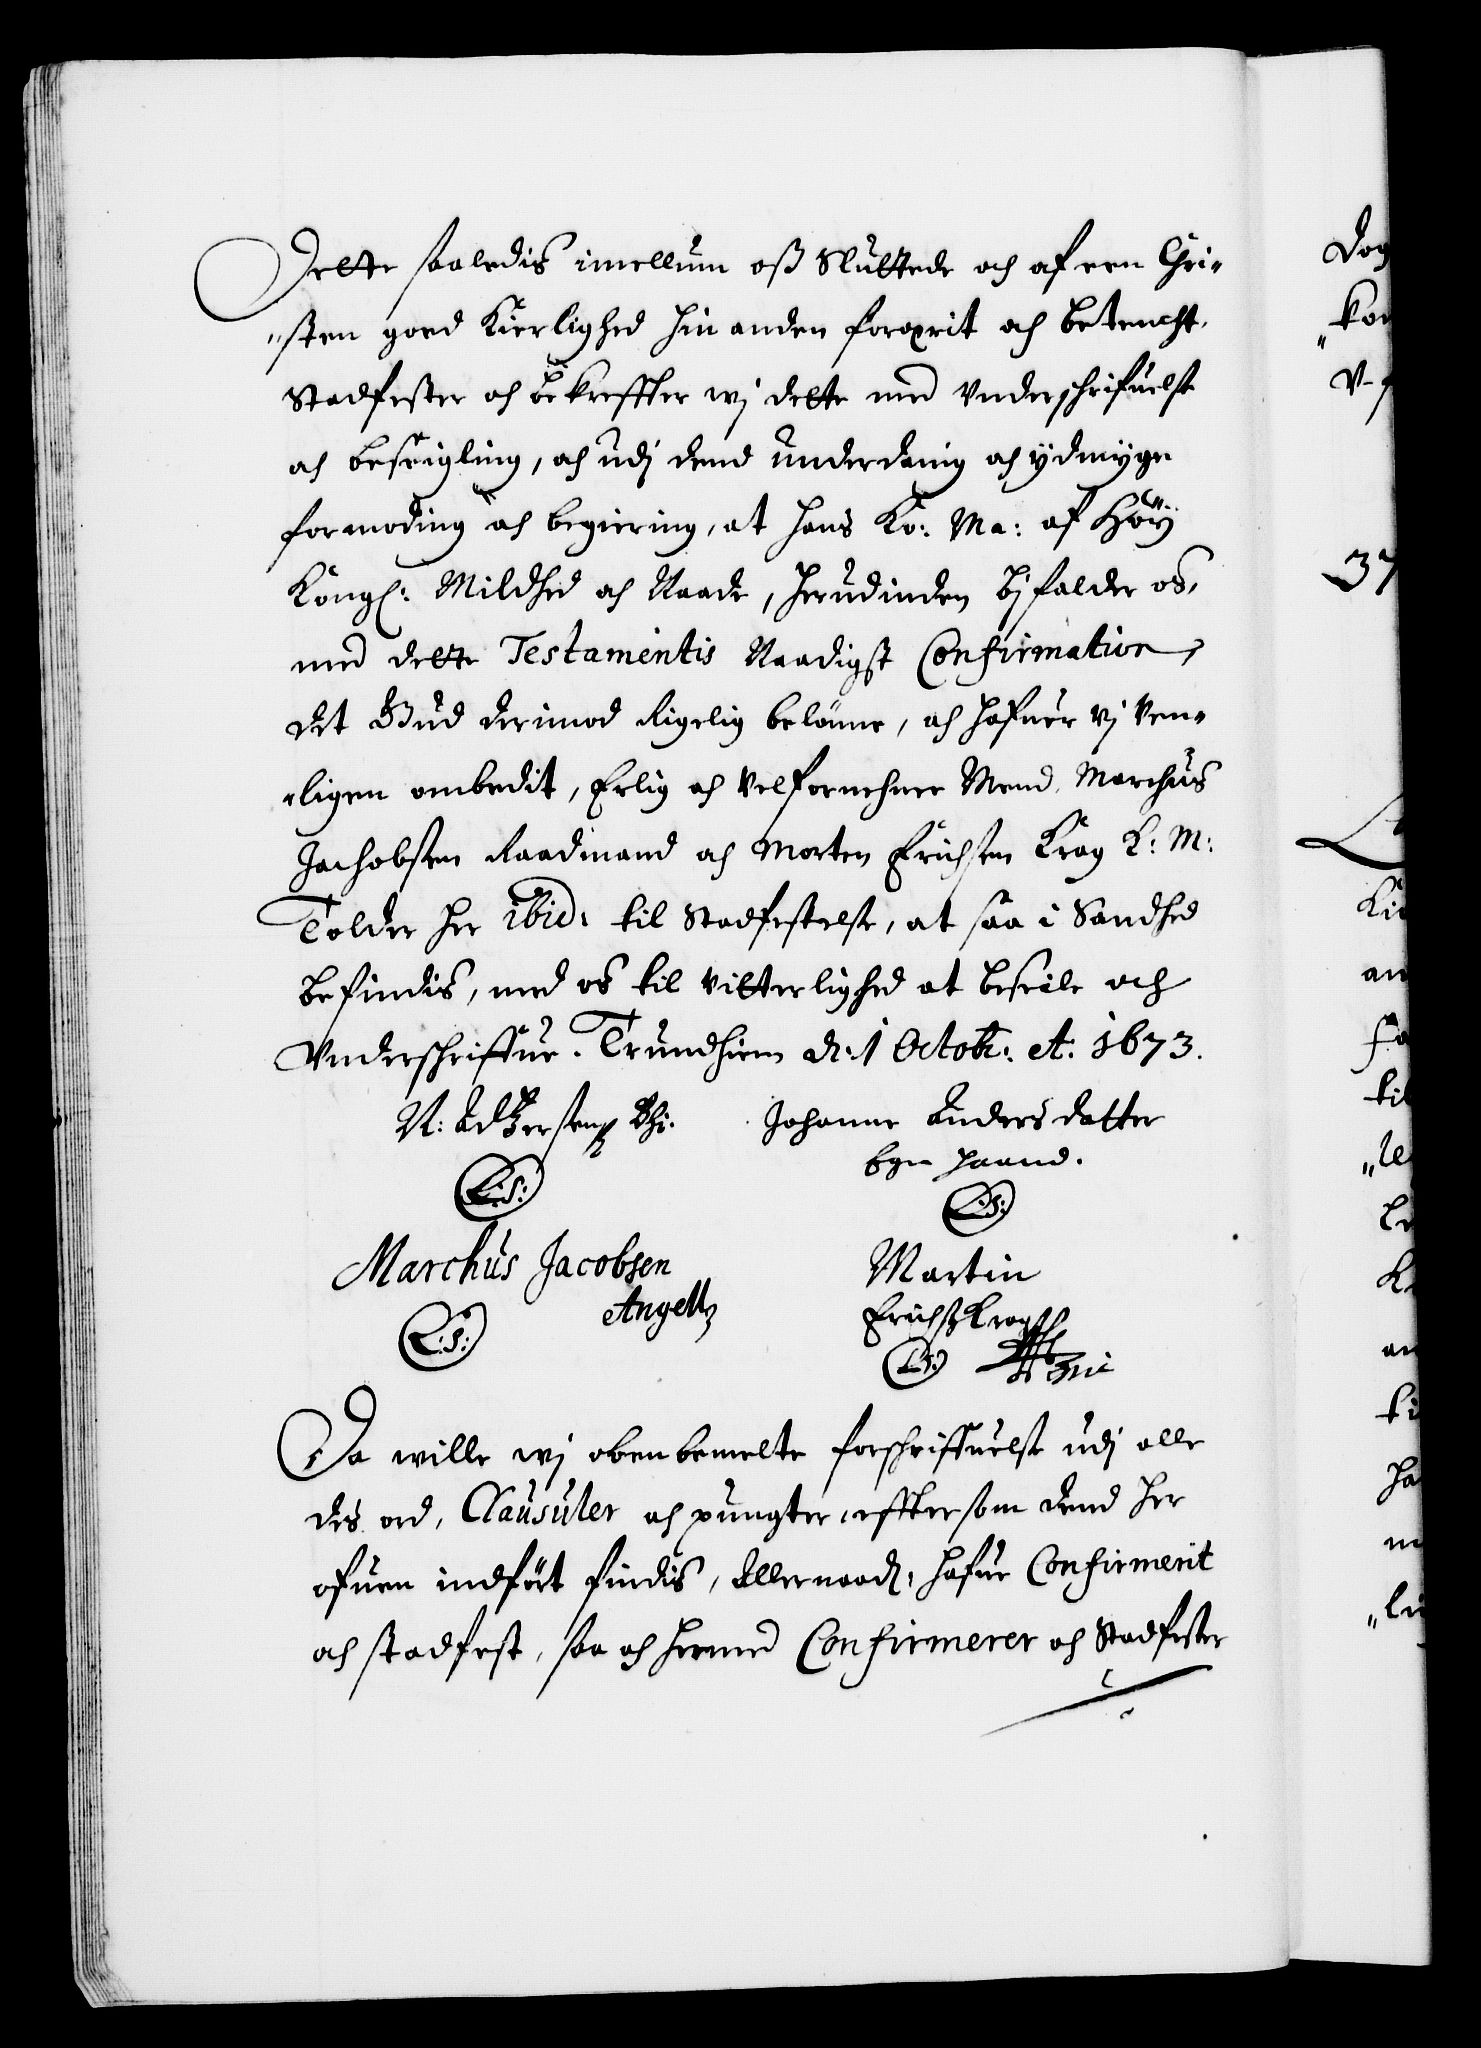 Dette saaledis imellum oß Sluttede och af reen Chri„
„sten goed Kierlighed hin anden foræerit och betencht.
Stadfester och bekreffter wj dette med Vnderschrifuelse
och beseigling, och udj dend underdanig och ydmyge
formoding och begiering, at hans Ko: Ma: af Höÿ
Kongl: Mildhed och Naade, herudinden bifalder os,
med dette Testamentis Naadigst Confirmation,
det Gud derimod Rigelig belönne, och hafuer Vj Ven„
„ligen ombedit, Erlig och Velfornehme Mend, Marchus
Jachobsen Raadmand och Morten Erichsen Krag K: M:
Tolder her ibid: til Stadfestelse, at saa i Sandhed
befindis, med os til Vitterlighed at beseile och
Vnderschriffue. Trundhiem d: 1 Octob: A: 1673.
N: Johanne Anders datter
Egen haand.
L:S: L:S:
Marchus Jacobsen Martin
Angell Erichs: Krag
L:S: L:S:
Da wille wj obenbemelte forschriffuelse udj alle
des ord, Clausuler och pungter, efftersom dend her
ofuen indfört findis, Allernaad: hafue Confirmerit
och stadfest, saa och hermed Confirmerer och Stadfester
Dog
37